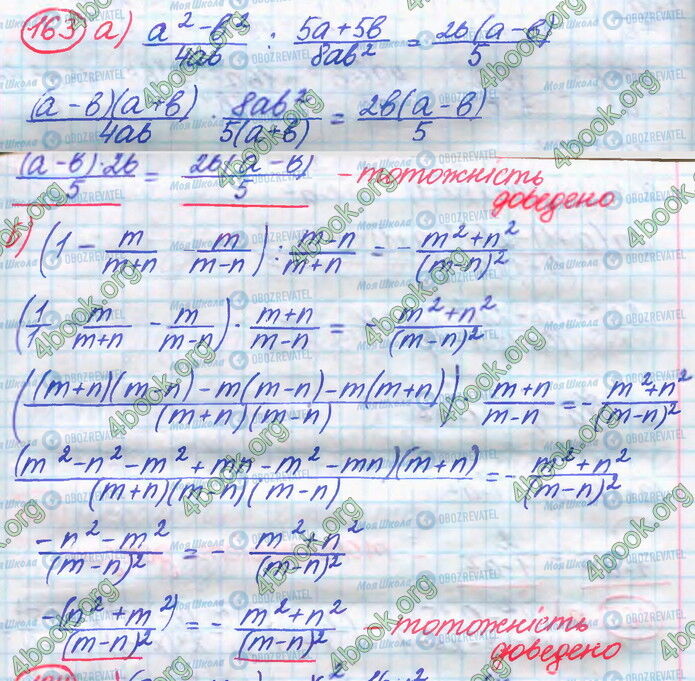 163 а) (a² - b²)/(4ab) : (5a + 5b)/(8ab²) = 2b(a - b)/5
(a - b)(a + b)/(4ab) · 8ab²/(5(a + b)) = 2b(a - b)/5
(a - b)·2b/5 = 2b(a - b)/5 - тотожність
доведено
б) (1 - m/(m+n) - m/(m-n)) : (m-n)/(m+n) = - (m² + n²)/(m-n)²
(1/1 - m/(m+n) - m/(m-n)) · (m+n)/(m-n) = - (m² + n²)/(m-n)²
(((m+n)(m-n) - m(m-n) - m(m+n))/((m+n)(m-n))) · (m+n)/(m-n) = - (m² + n²)/(m-n)²
(m² - n² - m² + mn - m² - mn)(m+n)/((m+n)(m-n)(m-n)) = - (m² + n²)/(m-n)²
(-n² - m²)/(m-n)² = - (m² + n²)/(m-n)²
-(n² + m²)/(m-n)² = - (m² + n²)/(m-n)² - тотожність
доведено
4book.org
Моя Школа
OBOZREVATEL